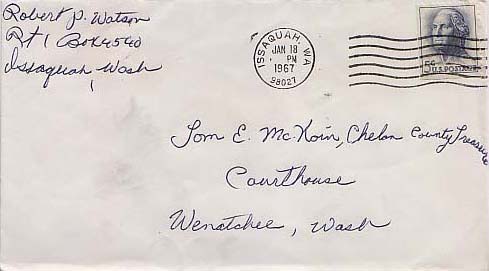 Robert P. Watson
Rt 1 Box 4540
Issaquah, Wash
ISSAQUAH, WA
JAN 18
PM
1967
98027
5¢ U.S. POSTAGE
Tom E. McKoin, Chelan County Treasure
Courthouse
Wenatchee, Wash